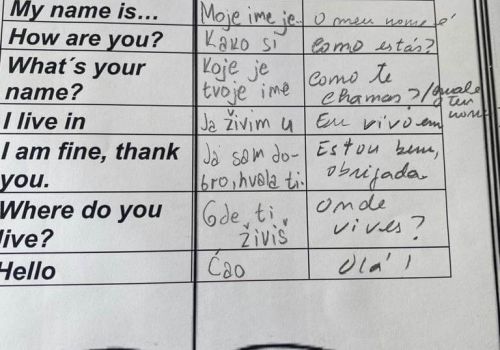 My name is...
Moje ime je..
O meu nome é
How are you?
Kako si
Como estás?
What´s your
name?
Koje je
tvoje ime
Como te
chamas?/quale
o teu
nome
I live in
Ja živim u
Eu vivo em
I am fine, thank
you.
Ja sam do-
bro, hvala ti.
Estou bem,
obrigada
Where do you
live?
Gde ti
živiš
Onde
vives?
Hello
Ćao
Olá!